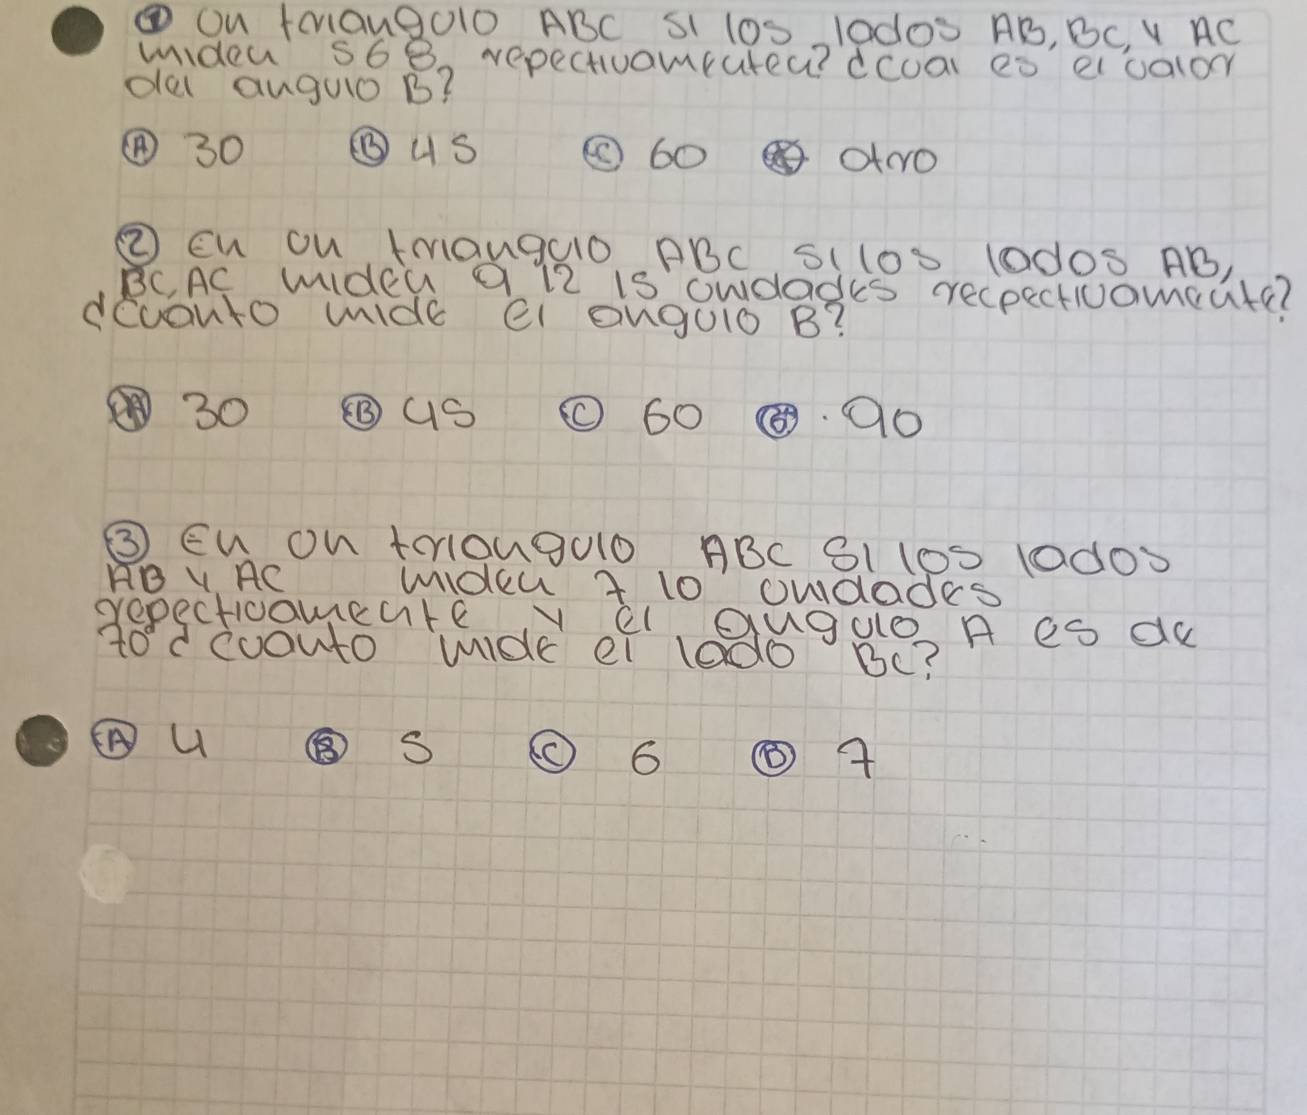 ① un triangulo ABC si los lados AB, BC, y AC
miden 5 6 8 repectivamenten? ¿cual es el valor
del angulo B?
Ⓐ 30 Ⓑ 45 Ⓒ 60 otro
② En un triangulo ABC si los lados AB,
BC, AC miden 9 12 15 unidades recpectivamente?
¿cuanto mide el angulo B?
Ⓐ 30 Ⓑ 45 Ⓒ 60 . 90
③ En un triangulo ABC si los lados
AB y AC miden 7 10 unidades
repectivamente y el angulo A es de
70 ¿cuanto mide el lado BC?
Ⓐ 4 Ⓑ 5 Ⓒ 6 Ⓓ 7